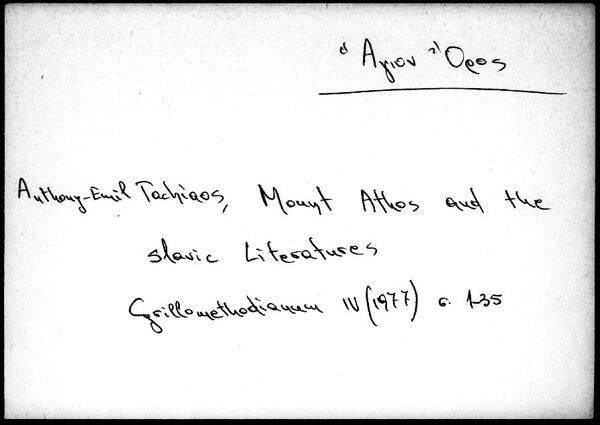 Ἅγιον Ὄρος
Anthony-Emil Tachiaos, Mount Athos and the
slavic Literatures
Cyrillomethodianum IV (1977) σ. 1-35